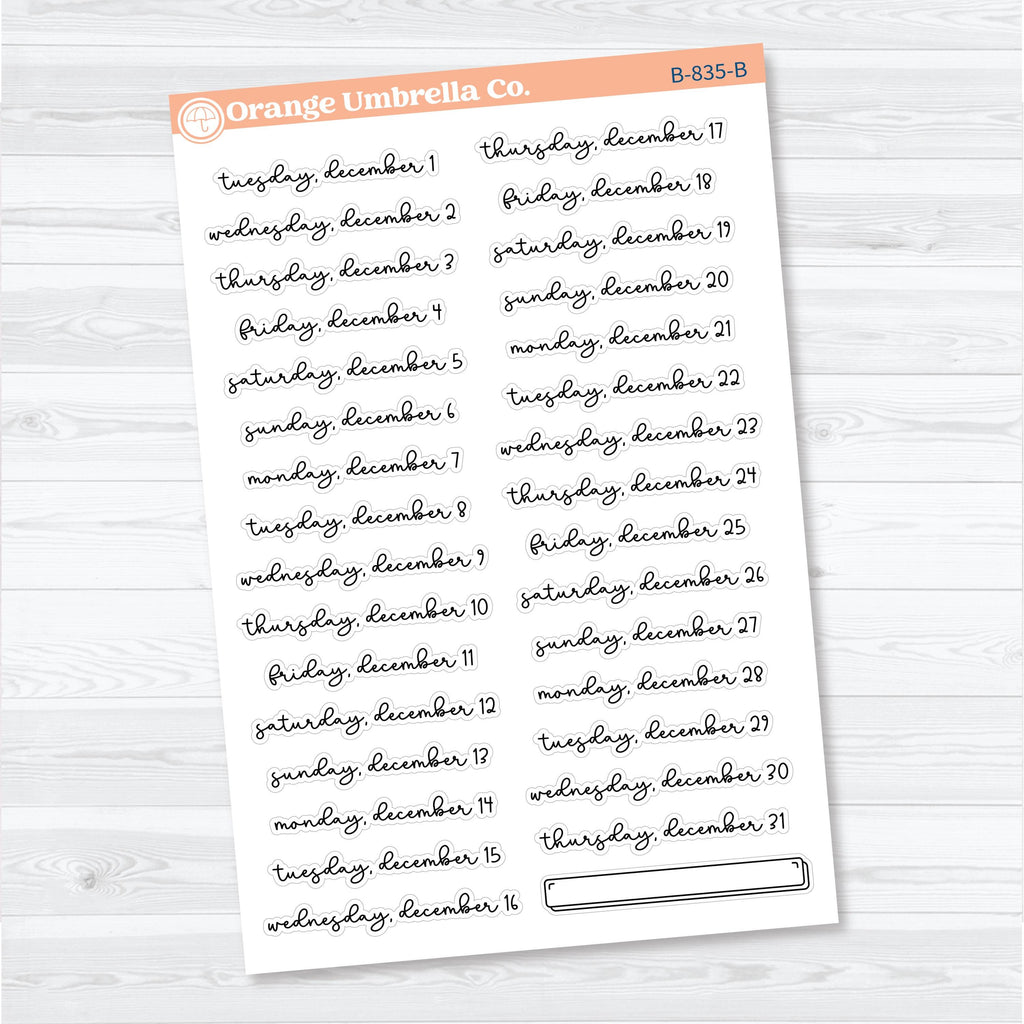 Orange Umbrella Co.
B-835-B
tuesday, december 1
wednesday, december 2
thursday, december 3
friday, december 4
saturday, december 5
sunday, december 6
monday, december 7
tuesday, december 8
wednesday, december 9
thursday, december 10
friday, december 11
saturday, december 12
sunday, december 13
monday, december 14
tuesday, december 15
wednesday, december 16
thursday, december 17
friday, december 18
saturday, december 19
sunday, december 20
monday, december 21
tuesday, december 22
wednesday, december 23
thursday, december 24
friday, december 25
saturday, december 26
sunday, december 27
monday, december 28
tuesday, december 29
wednesday, december 30
thursday, december 31